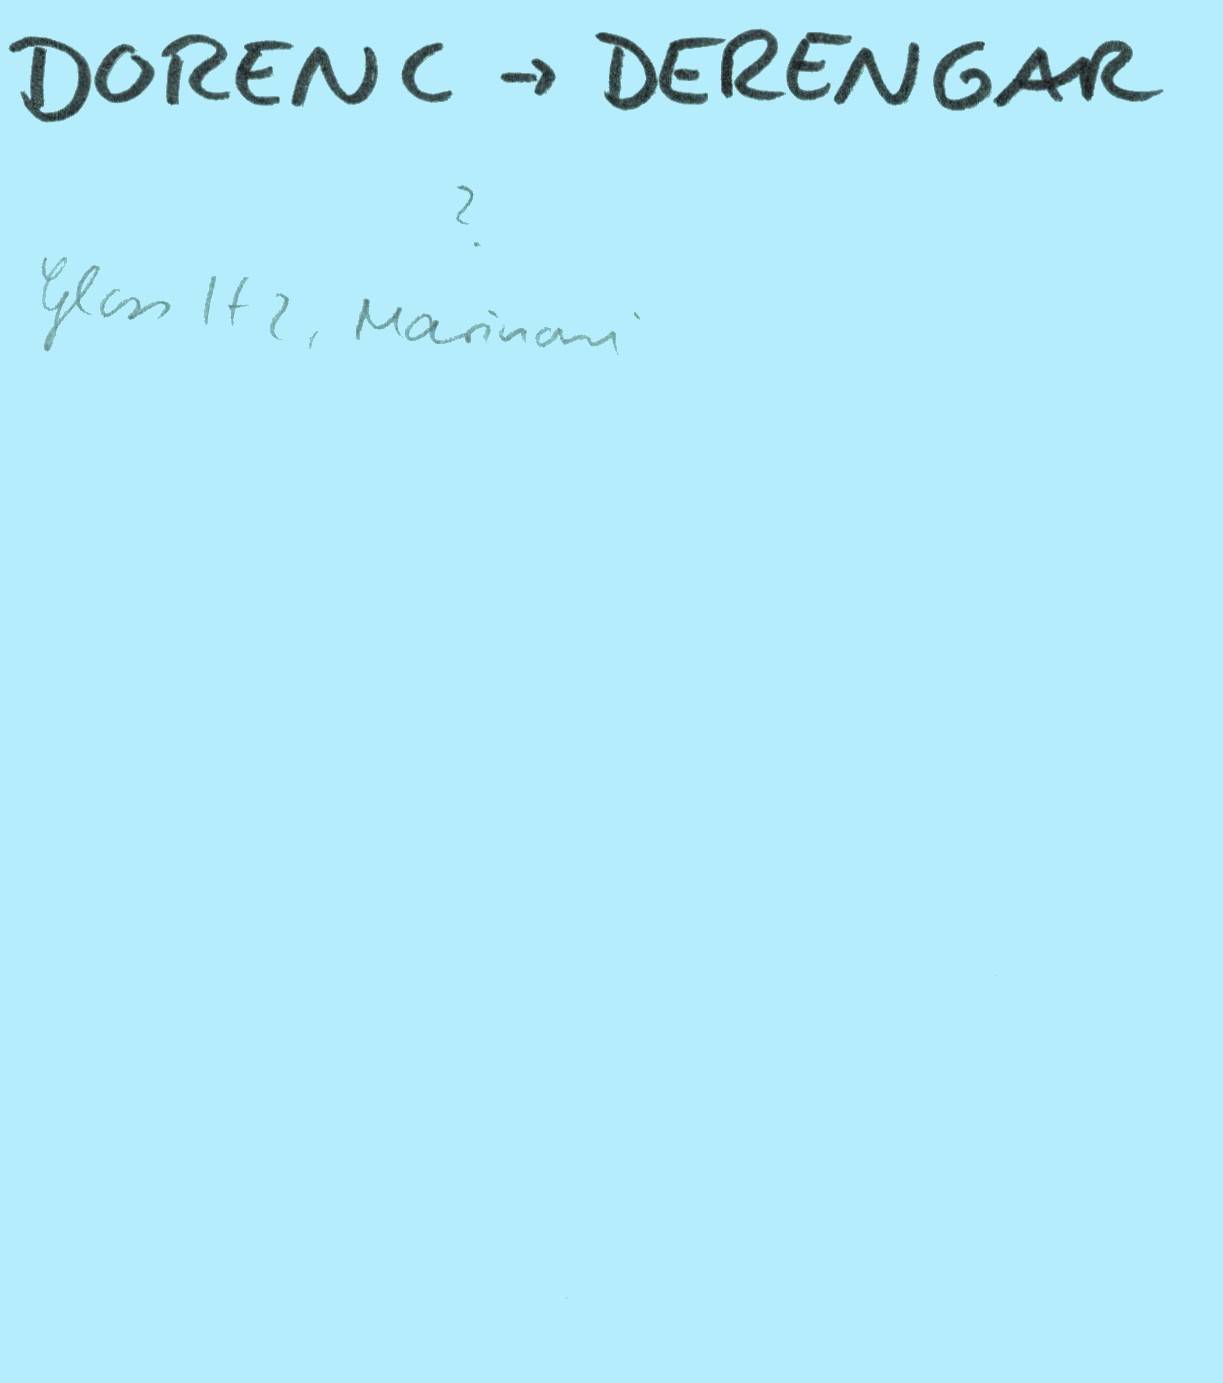 DORENC → DERENGAR
?
Gloss It 2, Marinoni